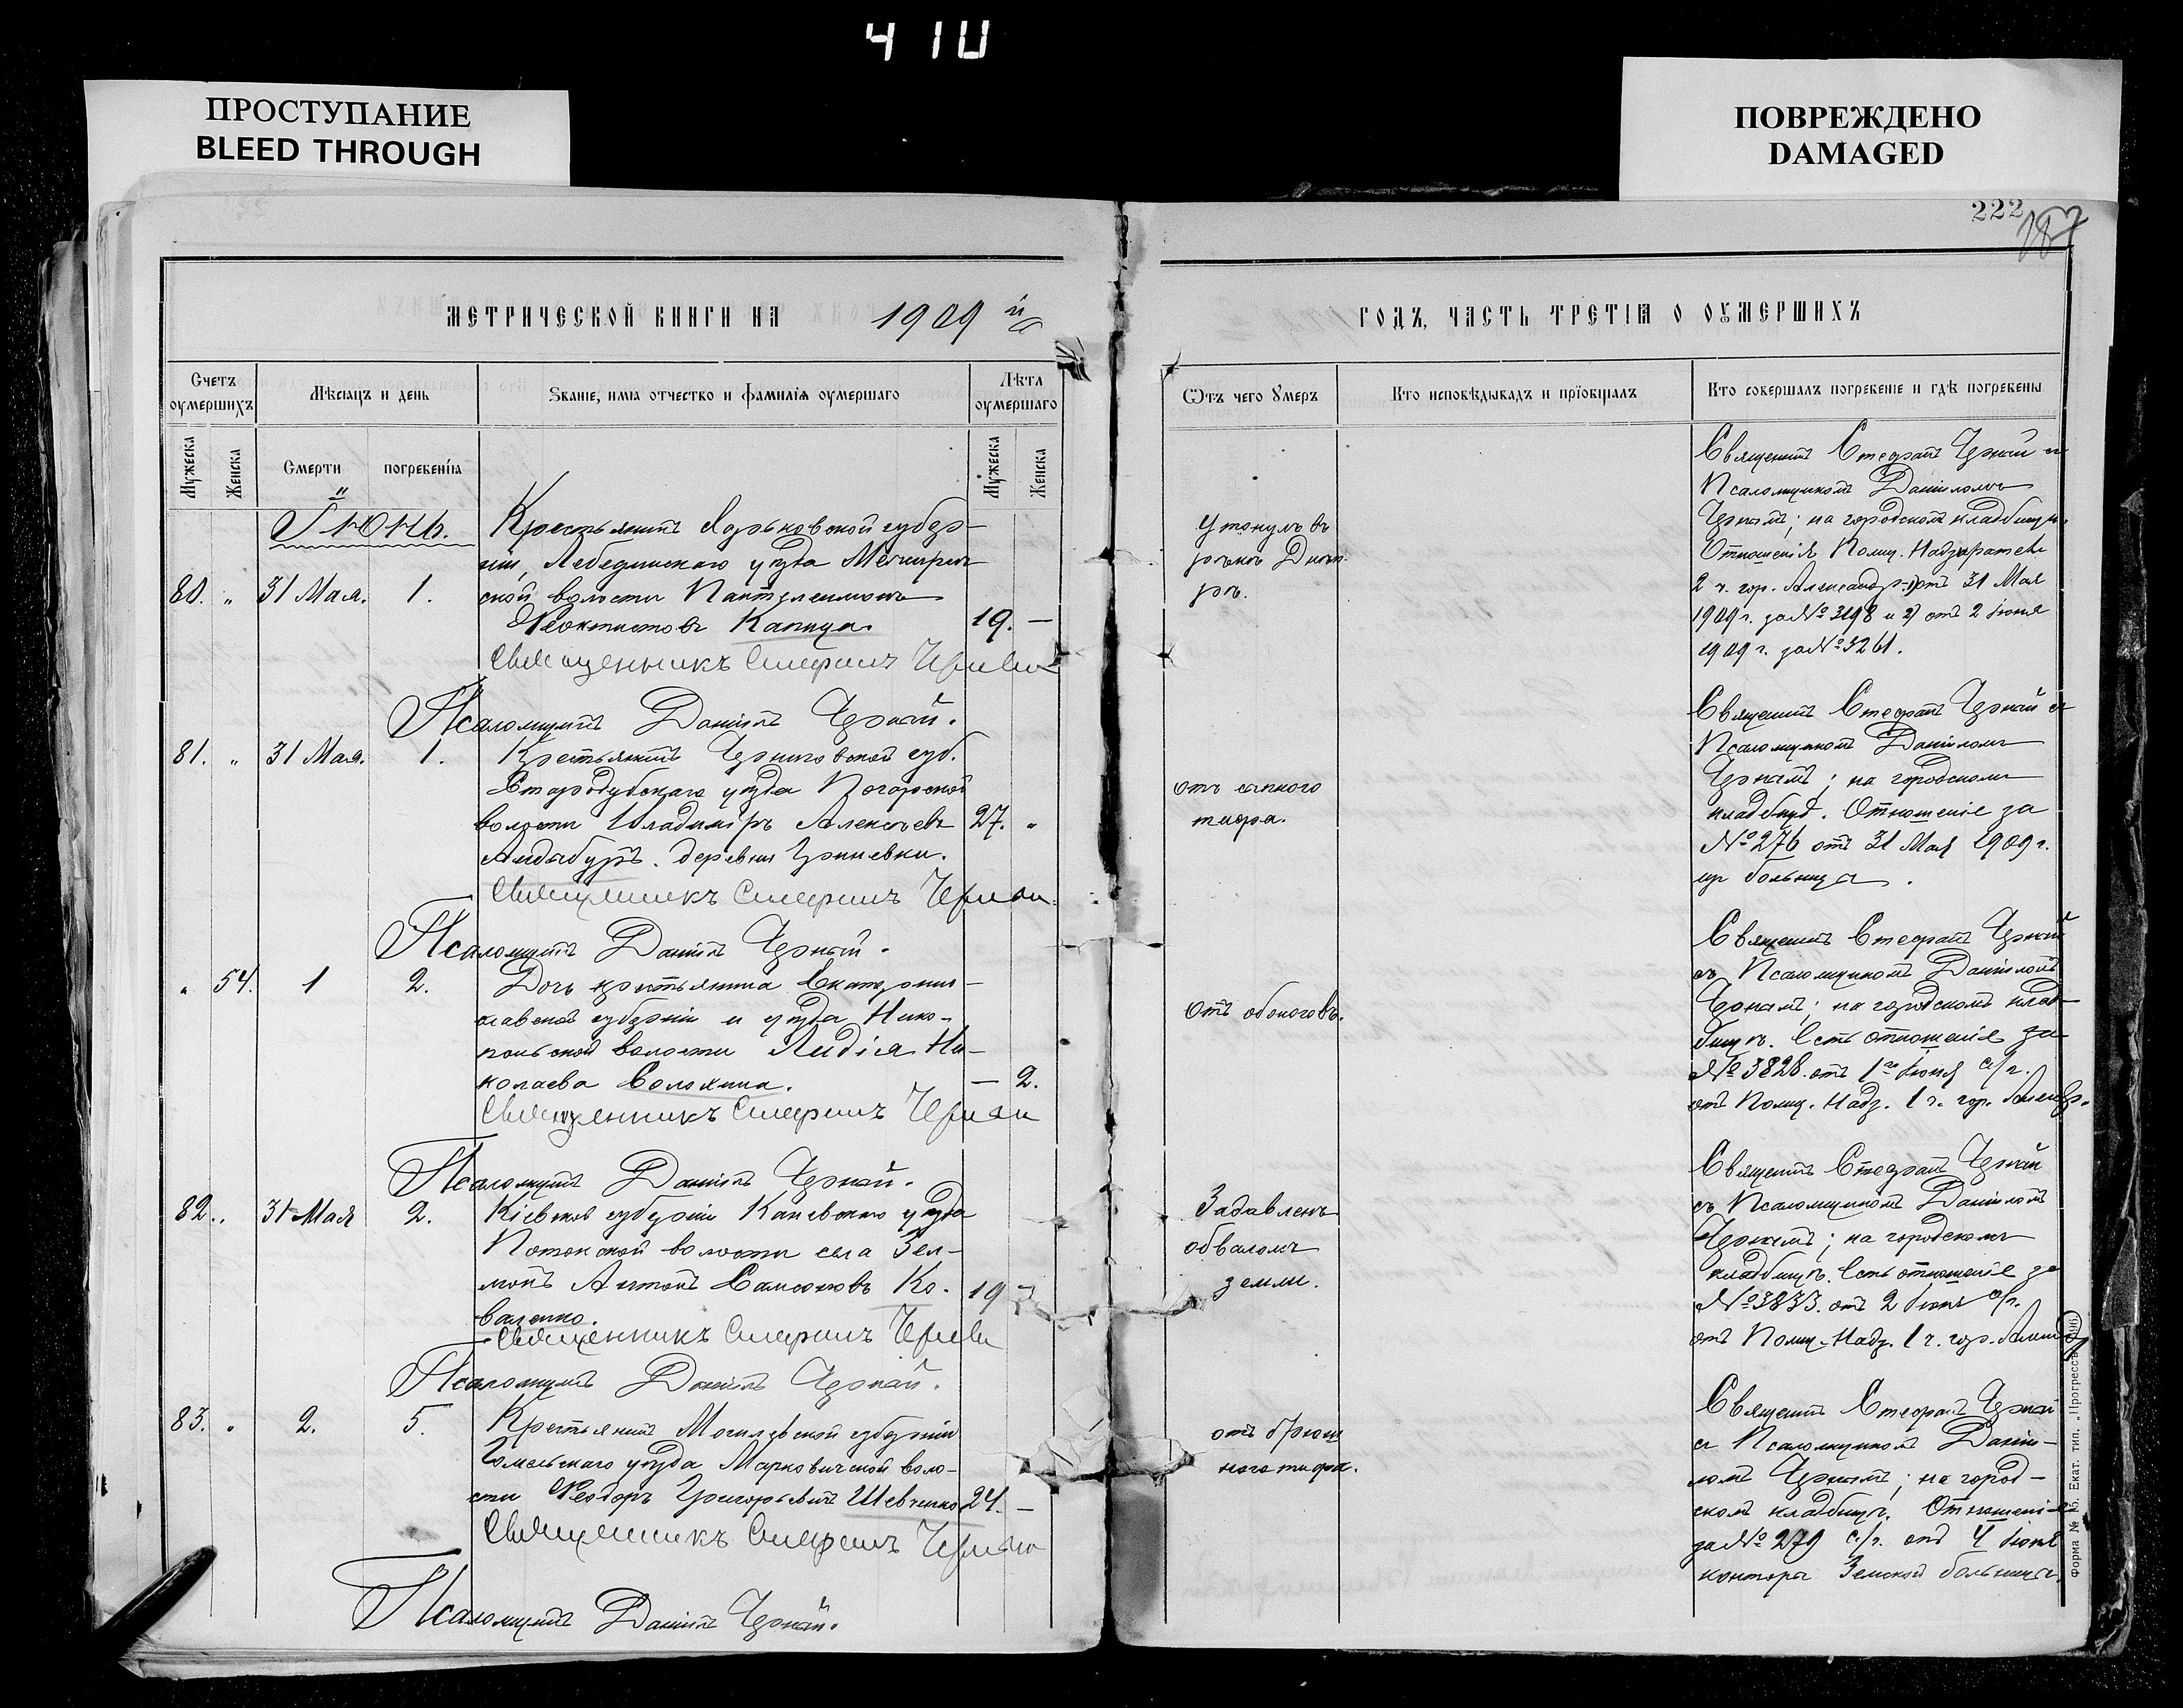 410
ПРОСТУПАНИЕ
BLEED THROUGH
ПОВРЕЖДЕНО
DAMAGED
222
187
МЕТРИЧЕСКОЙ КНИГИ НА 1909 й
ГОДЪ, ЧАСТЬ ТРЕТІѦ О ОУМЕРШИХЪ
Счетъ оумершихъ
Мѣсяцъ и день
Званіе, имѧ отчество и фамилія оумершаго
Лѣта оумершаго
Ѿтъ чего Умеръ
Кто исповѣдывалъ и пріобщалъ
Кто совершалъ погребеніе и гдѣ погребены
Мужеска
Женска
Смерти
погребенія
Мужеска
Женска
Іюнь.
80. " 31 Мая. 1.
Крестьянинъ Харьковской губер-
ніи, Лебединскаго уѣзда Межирич-
ской волости Пантелеимонъ
Феоктистовъ Капица. 19. —
Священникъ Стефанъ Черный
Псаломщикъ Даніилъ Черный.
Утонулъ въ
рѣкѣ Днѣп-
рѣ.
Священникъ Стефанъ Черный съ
Псаломщикомъ Даніиломъ
Чернымъ; на городскомъ кладбищѣ.
Отношенія Полиц. Надзирателя
2 ч. гор. Александр. 1) отъ 31 Мая
1909 г. за № 3198 и 2) отъ 2 Іюня
1909 г. за № 3261.
81. " 31 Мая. 1.
Крестьянинъ Черниговской губ.
Стародубскаго уѣзда Погарской
волости Владиміръ Алексѣевъ 27. "
деревни Гриневки.
Священникъ Стефанъ Черный
Псаломщикъ Даніилъ Черный.
отъ сыпного
тифа.
Священникъ Стефанъ Черный съ
Псаломщикомъ Даніиломъ
Чернымъ; на городскомъ
кладбищѣ. Отношеніе за
№ 276 отъ 31 Мая 1909 г.
больница.
" 54. 1 2.
Дочь крестьянина Екатерино-
славской губерніи и уѣзда Нико-
польской волости Лидія Ни-
колаева Солохина. — 2.
Священникъ Стефанъ Черный
Псаломщикъ Даніилъ Черный.
Отъ обжоговъ.
Священникъ Стефанъ Черный
съ Псаломщикомъ Даніиломъ
Чернымъ; на городскомъ клад-
бищѣ. Есть отношеніе за
№ 3828. отъ 1го Іюня с/г.
отъ Полиц. Надз. 1 ч. гор. Александр.
82. " 31 Мая 2.
Кіевской губерніи Каневскаго уѣзда
Потокской волости села Зел-
монъ Антонъ Самсоновъ Ко- 19 -
валенко.
Священникъ Стефанъ Черный
Псаломщикъ Даніилъ Черный.
Задавленъ
обваломъ
земли.
Священникъ Стефанъ Черный
съ Псаломщикомъ Даніиломъ
Чернымъ; на городскомъ
кладбищѣ. Есть отношеніе за
№ 3833. отъ 2 Іюня с/г.
отъ Полиц. Надз. 1 ч. гор. Александ
83. " 2. 5.
Крестьянинъ Могилевской губерніи
Гомельскаго уѣзда Марковичской воло-
сти Феодоръ Григорьевичъ Шевченко 24. —
Священникъ Стефанъ Черный
Псаломщикъ Даніилъ Черный.
отъ брюш
ного тифа.
Священникъ Стефанъ Черный
съ Псаломщикомъ Даніи-
ломъ Чернымъ; на город-
скомъ кладбищѣ. Отношеніе
за № 279 с/г. отъ 4 Іюня
конторы Земской больницы.
Форма № 15. Екат. тип. „Прогрессъ"